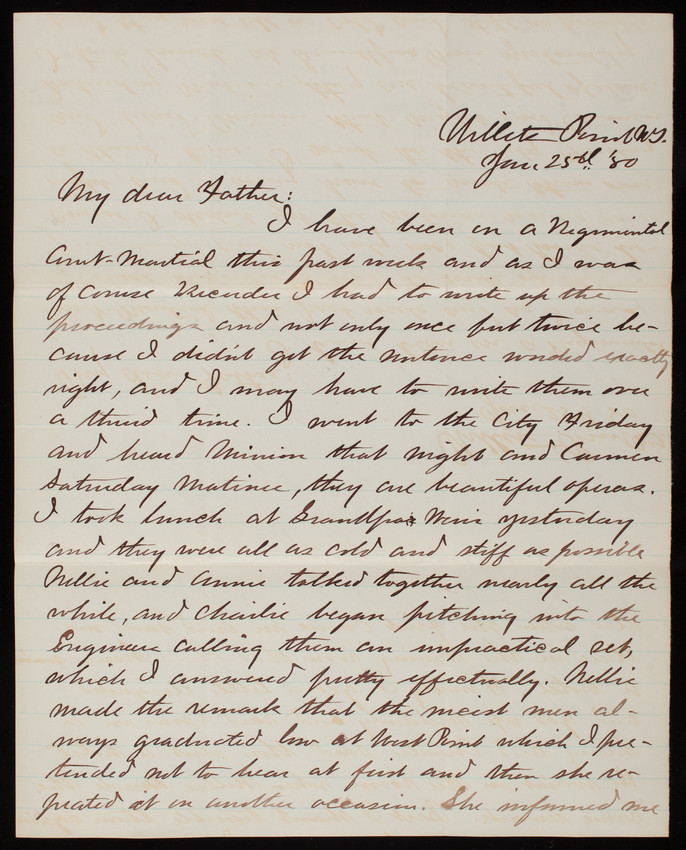 Willets Point N.Y.
Jan 25th '80
My dear Father:
I have been on a Regimental
Court-Martial this past week and as I was
of course Recorder I had to write up the
proceedings and not only once but twice be-
cause I didn't get the sentence worded exactly
right, and I may have to write them over
a third time. I went to the City Friday
and heard Mignon that night and Carmen
Saturday Matinee, they are beautiful operas.
I took lunch at Grandpa Weir yesterday
and they were all as cold and stiff as possible
Nellie and Annie talked together nearly all the
while, and Charlie began pitching into the
Engineers calling them an unpractical set,
which I answered pretty effectually. Nellie
made the remark that the nicest men al-
ways graduated low at West Point which I pre-
tended not to hear at first and then she re-
peated it on another occasion. She informed me